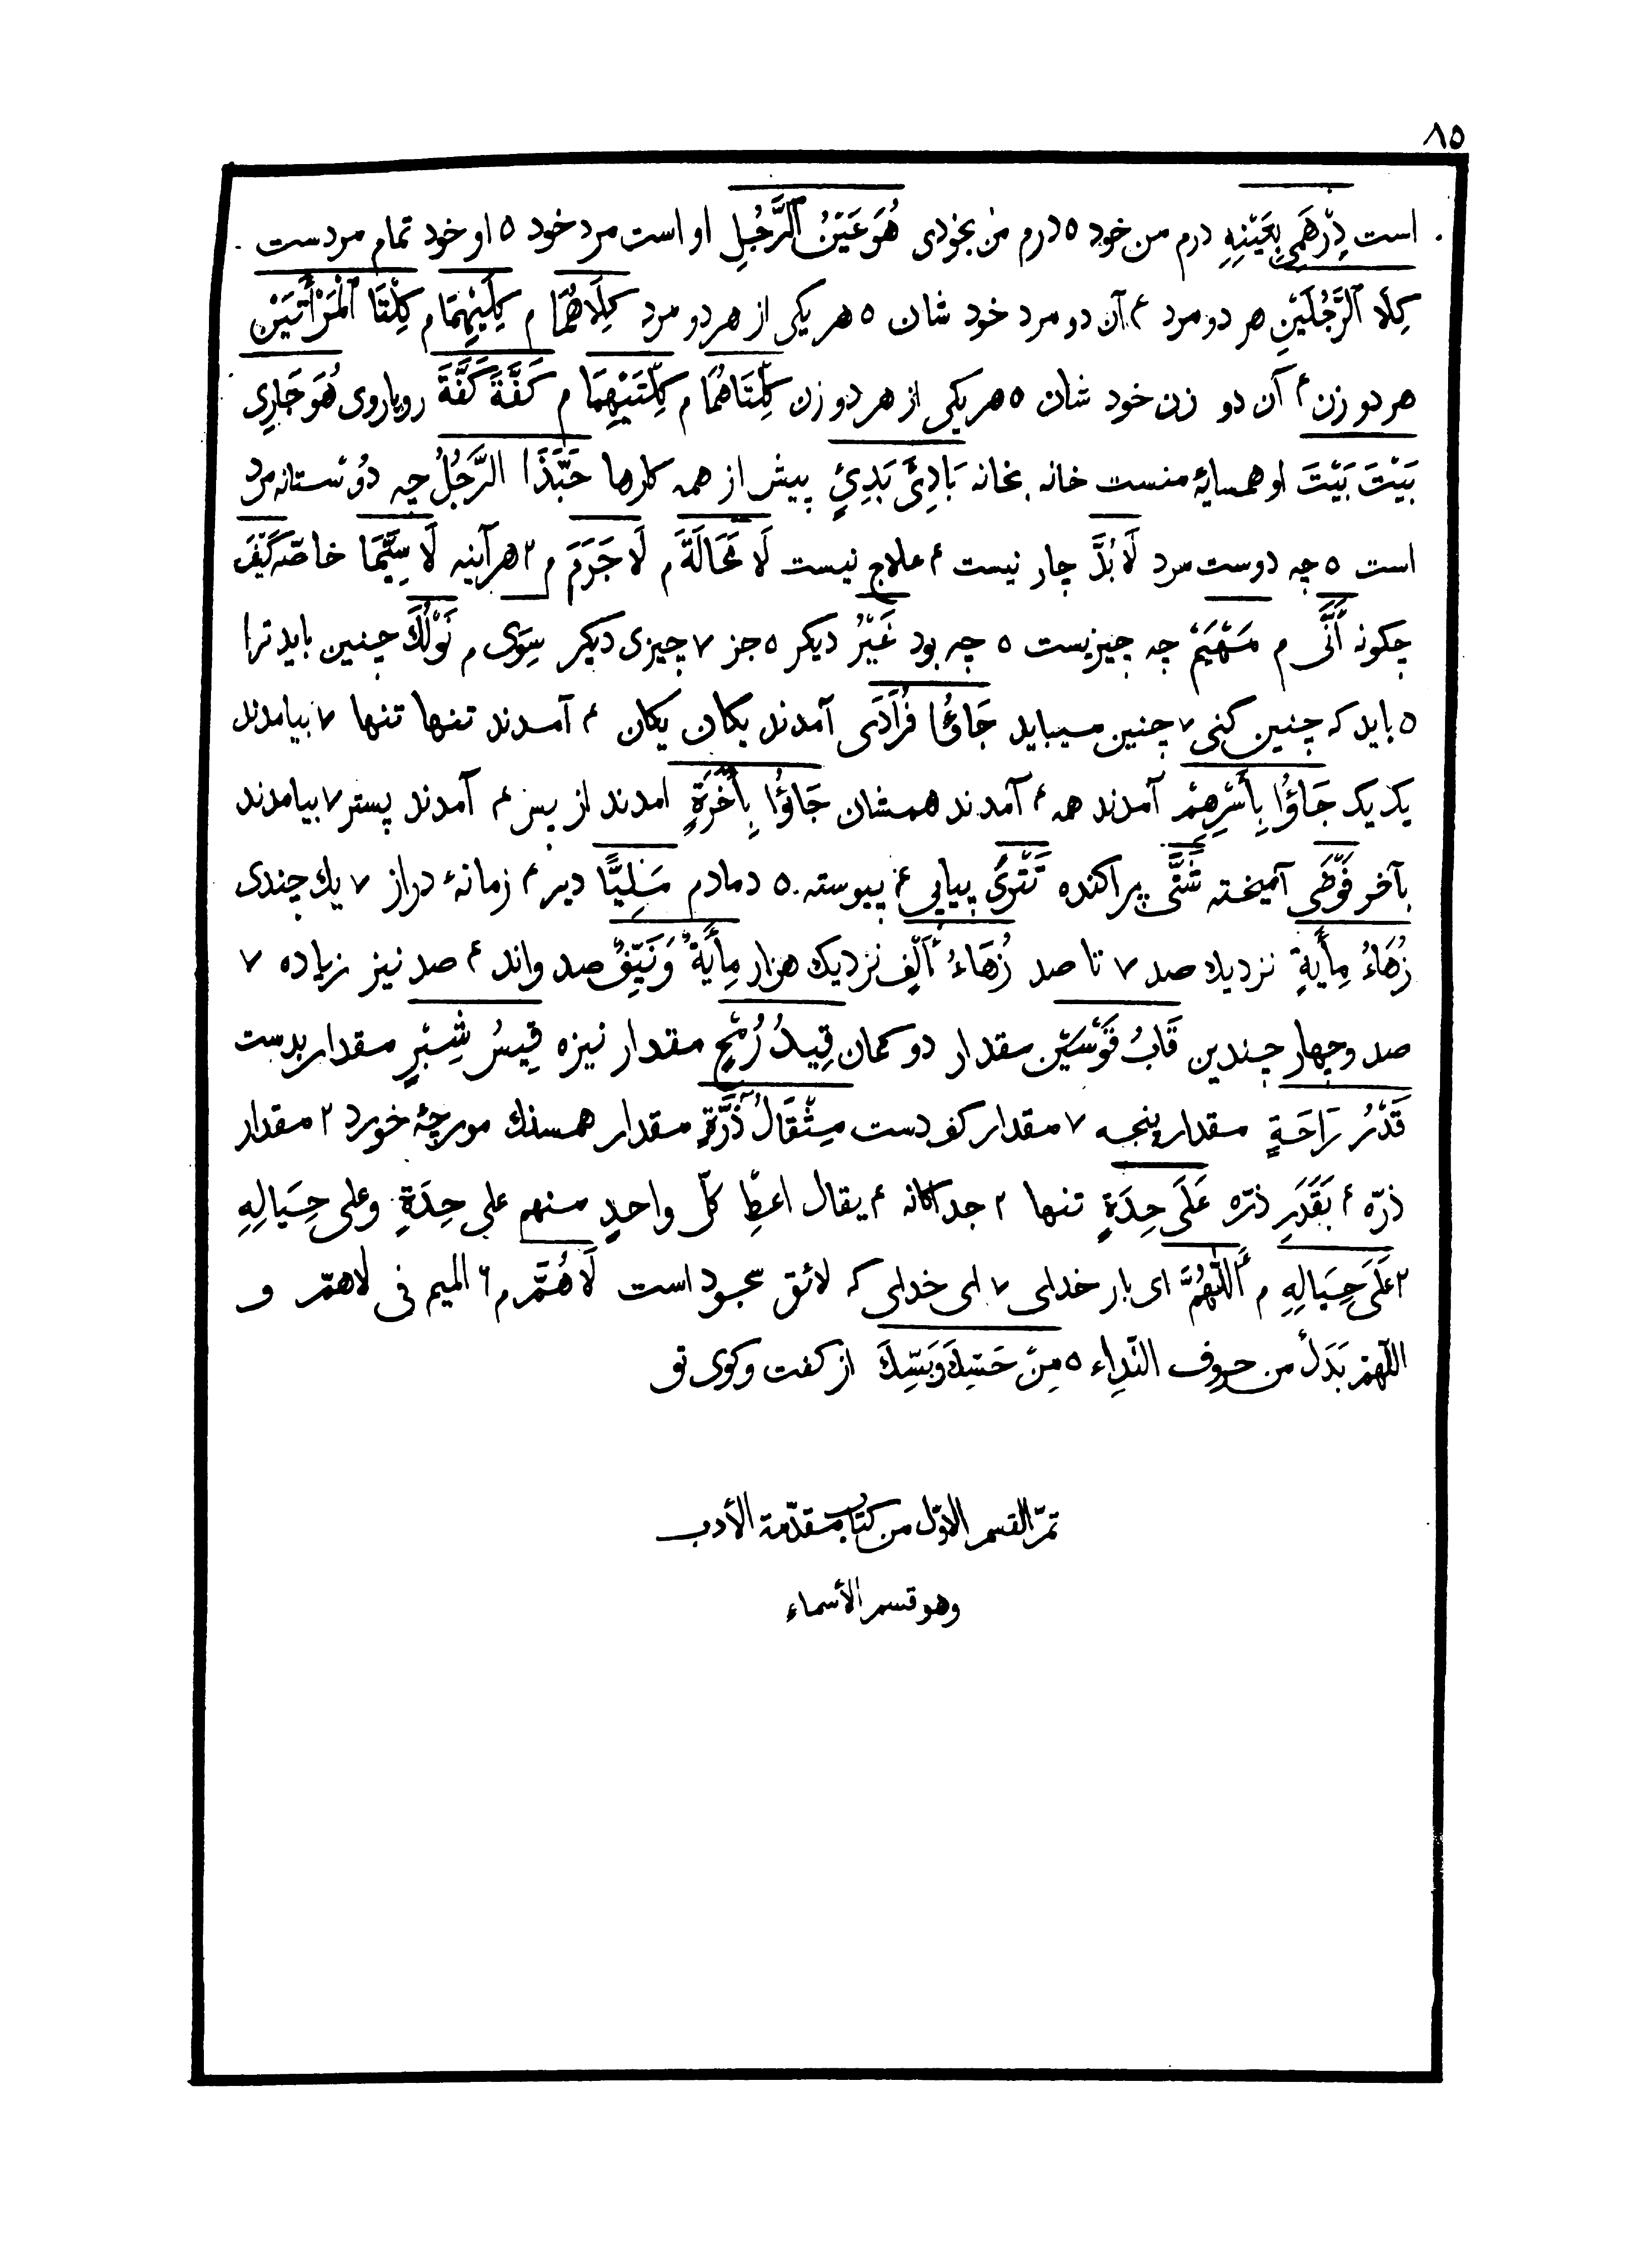 ٨٥
است دِرْهَمِي بِعَيْنِهِ درم من خود ٥ درم من بخودى هُوَ عَيْنُ ٱلرَّجُلِ او است مرد خود ٥ او خود تمام مردست
كِلَا ٱلرَّجُلَيْنِ هر دو مرد ۴ آن دو مرد خود شان ٥ هر يكى از هر دو مرد كِلَاهُمَا م كِلَيْهِمَا م كِلْتَا ٱلْمَرْأَتَيْنِ
هر دو زن ۴ آن دو زن خود شان ٥ هر يكى از هر دو زن كِلْتَاهُمَا م كِلْتَيْهِمَا م كَفَّةَ كَفَّةَ روياروى هُوَ جَارِى
بَيْتَ بَيْتَ او همسايۀ منست خانه بخانه بَادِئَ بَدِئٍ پيش از همه كارها حَبَّذَا الرَّجُلُ چه دوستانه مرد
است ٥ چه دوست مرد لَا بُدَّ چار نيست ۴ علاج نيست لَا مَحَالَةَ م لَا جَرَمَ م ٢ هرآينه لَا سِيَّمَا خاصّه كَيْفَ
چكونه أَنَّى م مَهْيَمْ چه چيزيست ٥ چه بود غَيْرُ ديكر ٥ جز ٧ چيزى ديكر سِوَى م نَوْلُكَ چنين بايد ترا
٥ بايد كه چنين كنى ٧ چنين ميبايد جَاؤُا فُرَادَى آمدند يكان يكان ۴ آمدند تنها تنها ٧ بيامدند
يك يك جَاؤُا بِأَسْرِهِمْ آمدند همه ۴ آمدند همشان جَاؤُا بِأَخَرَةٍ امدند از پس ۴ آمدند پستر ٧ بيامدند
بآخر فَوْضَى آميخته شَتَّى پراكنده تَتْرَى پياپى ۴ پيوسته ٥ دمادم مَلِيًّا دير ۴ زمانۀ دراز ٧ يك چندى
زُهَاءُ مِأَيَةٍ نزديك صد ٧ تا صد زُهَاءُ أَلْفٍ نزديك هزار مِأَيَةٌ وَنَيِّفٌ صد واند ۴ صد نيز زياده ٧
صد وچهار چندين قَابُ قَوْسَيْنِ مقدار دو كمان قِيدُ رُمْحٍ مقدار نيزه قِيسُ شِبْرٍ مقدار بدست
قَدْرُ رَاحَةٍ مقدار پنجه ٧ مقدار كف دست مِثْقَالُ ذَرَّةٍ مقدار همسنك مورچۀ خورد ٢ مقدار
ذرّه ۴ بَقَدَرِ ذرّه عَلَى حِدَةٍ تنها ٢ جداكانه ۴ يقال اعطِ كلّ واحدٍ منهم على حِدَةٍ وعلى حِيَالِهِ
٢ عَلَى حِيَالِهِ م أَللّٰهُمَّ اى بار خداى ٧ اى خداى كه لائق سجود است لَاهُمَّ م ٦ الميم فى لاهمّ و
اللّهمّ بَدَلٌ من حروف النّداء ٥ مِنْ حَسِّكَ وَبَسِّكَ از كفت وكوى تو
تمّ القسم الأوّل من كتاب مقدّمة الأدب
وهو قسم الأسماء